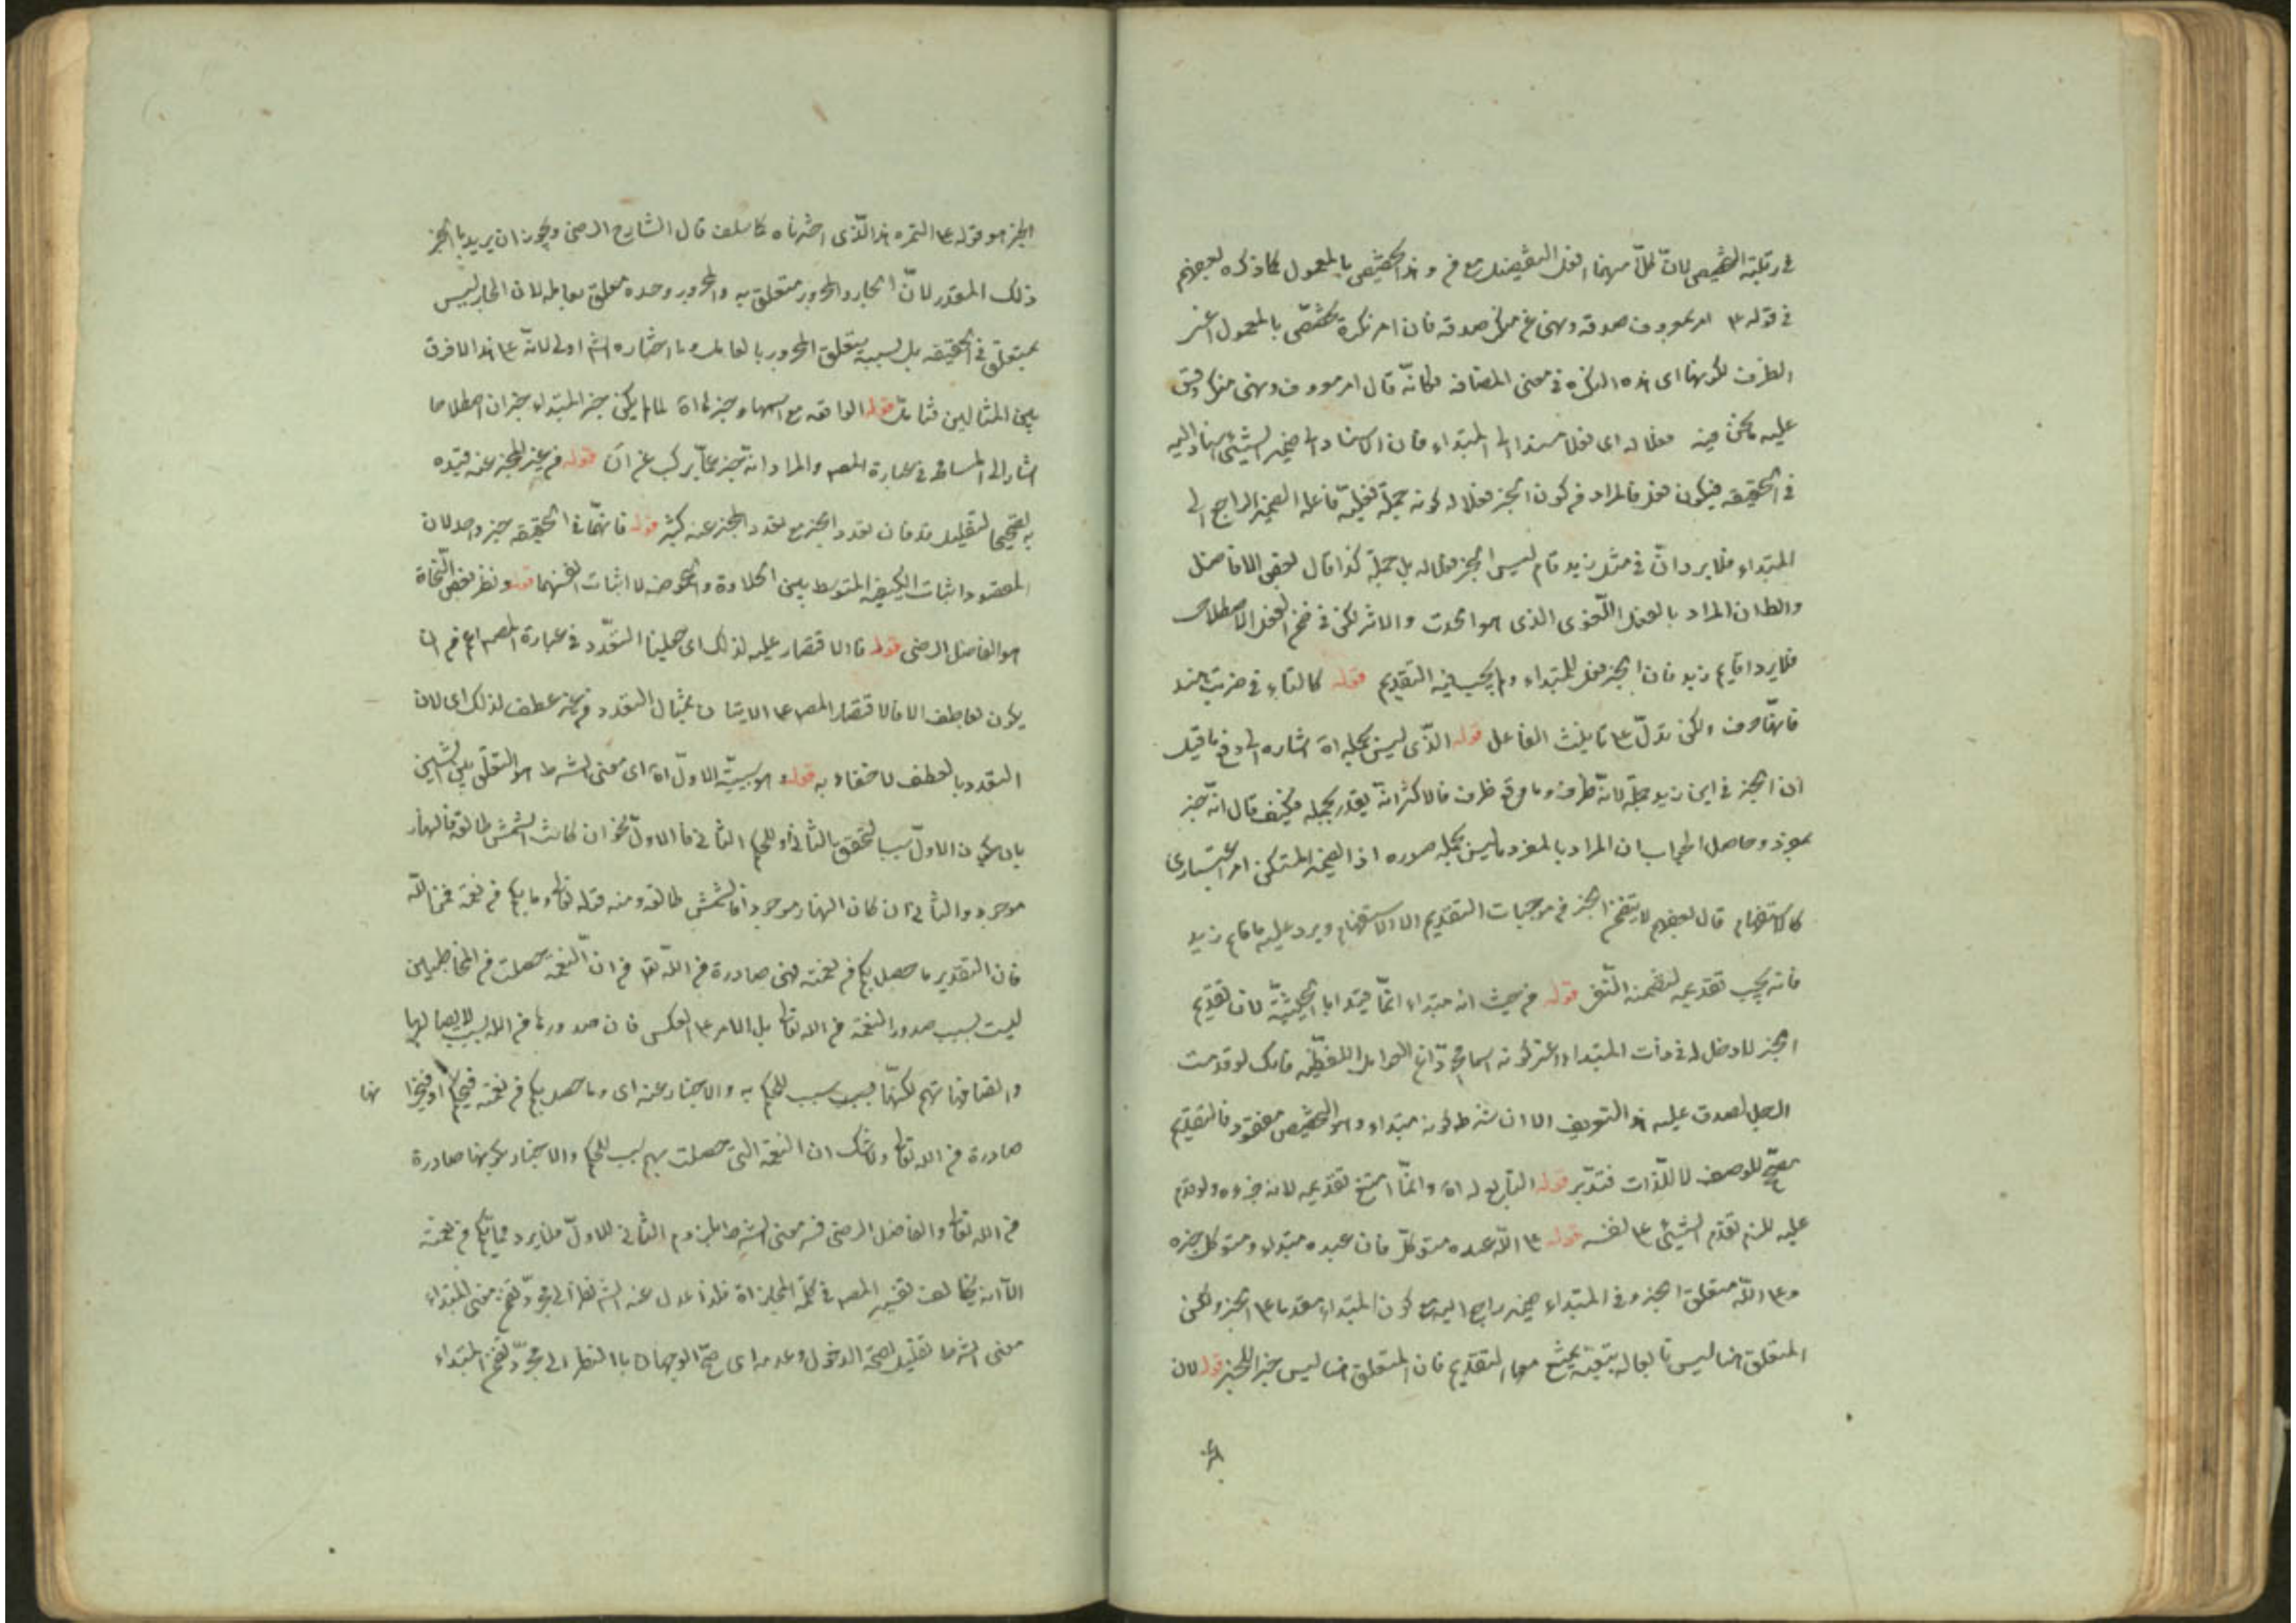 في رتبة التخصيص لان كلا منهما افعل التفضيل مع من وهذا تخصيص بالمعمول كما ذكره بعضهم
في قوله امر بمعروف صدقة ونهى عن منكر صدقة فان امر نكرة تخصص بالمعمول اعنى
الظرف لكونها اى هذه النكرة في معنى المضافه فكانه قال امر معروف ونهى منكر وقس
عليه ما نحن فيه فعلا له اى فعلا مسندا الى المبتداء فان الاسناد الى ضمير الشيئ اسناد اليه
في الحقيقه فيكون فعله فالمراد من كون الخبر فعلا له كونه جملة فعلية فاعلها الضمير الراجع الى
المبتداء فلا يرد ان في مثل زيد قام ليس الخبر فعلا له بل جملة كذا قال بعض الافاضل
والظ ان المراد بالفعل اللغوى الذى هو الحدث والاثر لكن في ضمن الفعل الاصطلاحى
فلا يرد اقايم زيد فان الخبر فعل للمبتداء ولم يجب فيه التقديم قوله كالتاء في ضربت هند
فانها حرف ولكن تدل على تانيث الفاعل قوله الذى ليس بجملة اه اشاره الى دفع ما قيل
ان الخبر في اين زيد جملة لانه ظرف وما وقع ظرف فالاكثر انه يقدر بجمله فكيف قال انه خبر
بمفرد وحاصل الجواب ان المراد بالمفرد ما ليس بجمله صوره اذ الضمير المستكن امر اعتبارى
كالاستفهام قال بعضهم لا يتضمن الخبر من موجبات التقديم الا الاستفهام ويرد عليه ما قايم زيد
فانه يجب تقديمه لتضمنه النفى قوله من حيث انه مبتداء انما قيد بالحيثية لان تقديم
الخبر لا دخل له في ذات المبتداء اعنى كونه اسما مجردا عن العوامل اللفظية فانك لو قدمت
الرجل لصدق عليه هذا التعريف الا ان شرط كونه مبتداء وهو التخصيص مفقود فالتقديم
مصحح للوصف لا للذات فتدبر قوله التابع له اه وانما امتنع تقديمه لانه جزءه ولو قدم
عليه للزم تقدم الشيئ على نفسه قوله على الله عبده متوكل فان عبده مبتداء ومتوكل خبره
وعلى الله متعلق الخبر وفي المبتداء ضمير راجع اليه مع كون المبتداء مقدما على الخبر ولكن
المتعلق هنا ليس تابعا له بتبعية يمتنع معها التقديم فان المتعلق هنا ليس خبرا للخبر قوله لان
الخبر هو قوله على التمره هذا الذى اخترناه كما سلف قال الشارح الرضى ويجوز ان يريد بالخبر
ذلك المقدر لان الجار والمجرور متعلق به والمجرور وحده معلق بعامله لان الجار ليس
بمتعلق في الحقيقه بل بسببه يتعلق المجرور بالعامل وما اختاره الشم اولى لانه على هذا لا فرق
بين المثالين فتامل قوله الواقعه مع اسمها وخبرها اه لما لم يكن خبر المبتداء خبر ان اصطلاحا
اشار الى المسامحة في عبارة المصـ والمراد انه خبر عما تركب عن ان قوله من غير المخبر عنه قيده
به تصحيحا لتقليل قد فان تعدد الخبر مع تعدد المخبر عنه كثير قوله فانهما في الحقيقه خبر واحد لان
المقصود اثبات الكيفية المتوسطه بين الحلاوة والحموضه لا اثبات انفسهما قوله ونظر بعض النحاة
هو الفاضل الرضى قوله فالاقتصار عليه لذلك اى حملنا التعدد في عبارة المصـ اعم من ان
يكون بعاطف الا فالاقتصار المصـ على الاتيان بمثال التعدد من غير عطف لذلك اى لان
التعدد بالعطف لا خفاء به قوله وهو سببية الاول اه اى معنى الشرط هو التعلق بين الشيئين
بان يكون الاول سببا لتحقق الثانى او للحكم الثانى فالاول نحو ان كانت الشمس طالعه فالنهار
موجود والثانى ان كان النهار موجودا فالشمس طالعه ومنه قوله تعالى وما بكم من نعمة فمن الله
فان التقدير ما حصل بكم من نعمة فهى صادرة من الله تعالى من ان النعمة حصلت من المخاطبين
ليست بسبب صدور النعمة من الله تعالى بل الامر على العكس فان صدورها من الله سبب لايصالها
واتصافها بهم لكنها سبب للحكم به والاخبار عنه اى وما حصل بكم من نعمة فيحكم او فيخبر نها
صادرة من الله تعالى ولا شك ان النعمة التى حصلت بهم سبب للحكم والاخبار بكونها صادرة
من الله تعالى والفاضل الرضى فسر معنى الشرط بلزوم الثانى للاول فلا يرد وما بكم من نعمة
الا انه يخالف تفسير المصـ في كلم المجازاة فلذا عدل عنه الشم نظرا الى مجرد تضمن معنى المبتداء
معنى الشرط تعليل لصحة الدخول وعدمه اى صح الوجهان بالنظر الى مجرد تضمن المبتداء